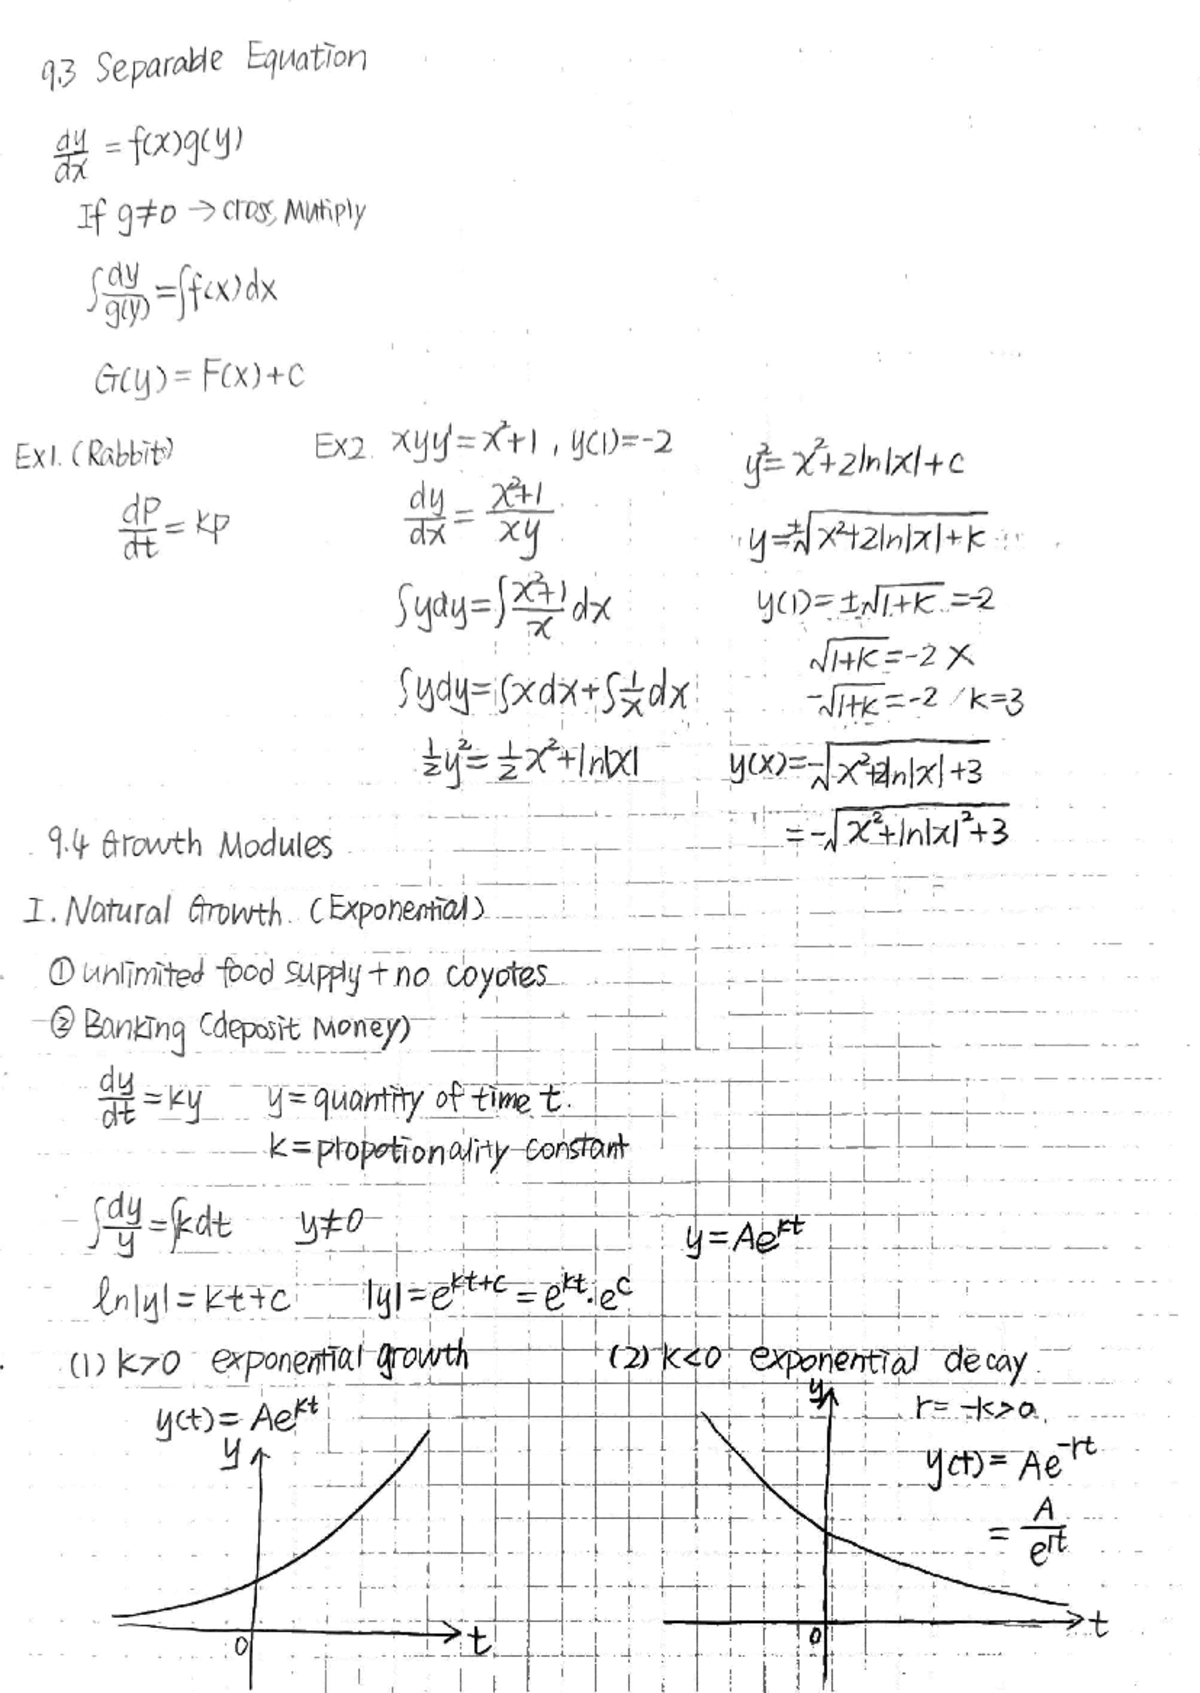 9.3 Separable Equation
dy/dx = f(x)g(y)
If g≠0 → cross, Mutiply
∫dy/g(y) = ∫f(x)dx
G(y) = F(x)+C
Ex1. (Rabbit)
dP/dt = kp
Ex2. xyy' = x²+1, y(1)=-2
dy/dx = (x²+1)/(xy)
∫ydy = ∫(x²+1)/x dx
∫ydy = ∫xdx + ∫1/x dx
1/2 y² = 1/2 x² + ln|x|
y² = x²+2ln|x|+C
y = ±√(x²+2ln|x|+k)
y(1) = ±√(1+k) = -2
√(1+k) = -2 ×
-√(1+k) = -2 / k=3
y(x) = -√(x²+2ln|x|+3)
= -√(x²+ln|x|²+3)
9.4 Growth Modules
I. Natural Growth. (Exponential)
① unlimited food supply + no coyotes
② Banking (deposit Money)
dy/dt = ky y = quantity of time t.
k = propotionality constant
∫dy/y = ∫kdt y≠0
y = Ae^(kt)
ln|y| = kt+c |y| = e^(kt+c) = e^(kt)·e^c
(1) k>0 exponential growth
y(t) = Ae^(kt)
y
0
t
(2) k<0 exponential decay.
y
r = -k>0.
y(t) = Ae^(-rt)
= A/e^(rt)
0
t